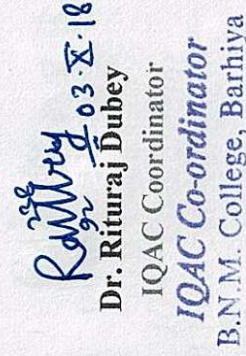 03·X·18
Dr. Rituraj Dubey
IQAC Coordinator
IQAC Co-ordinator
B.N.M. College, Barhiya